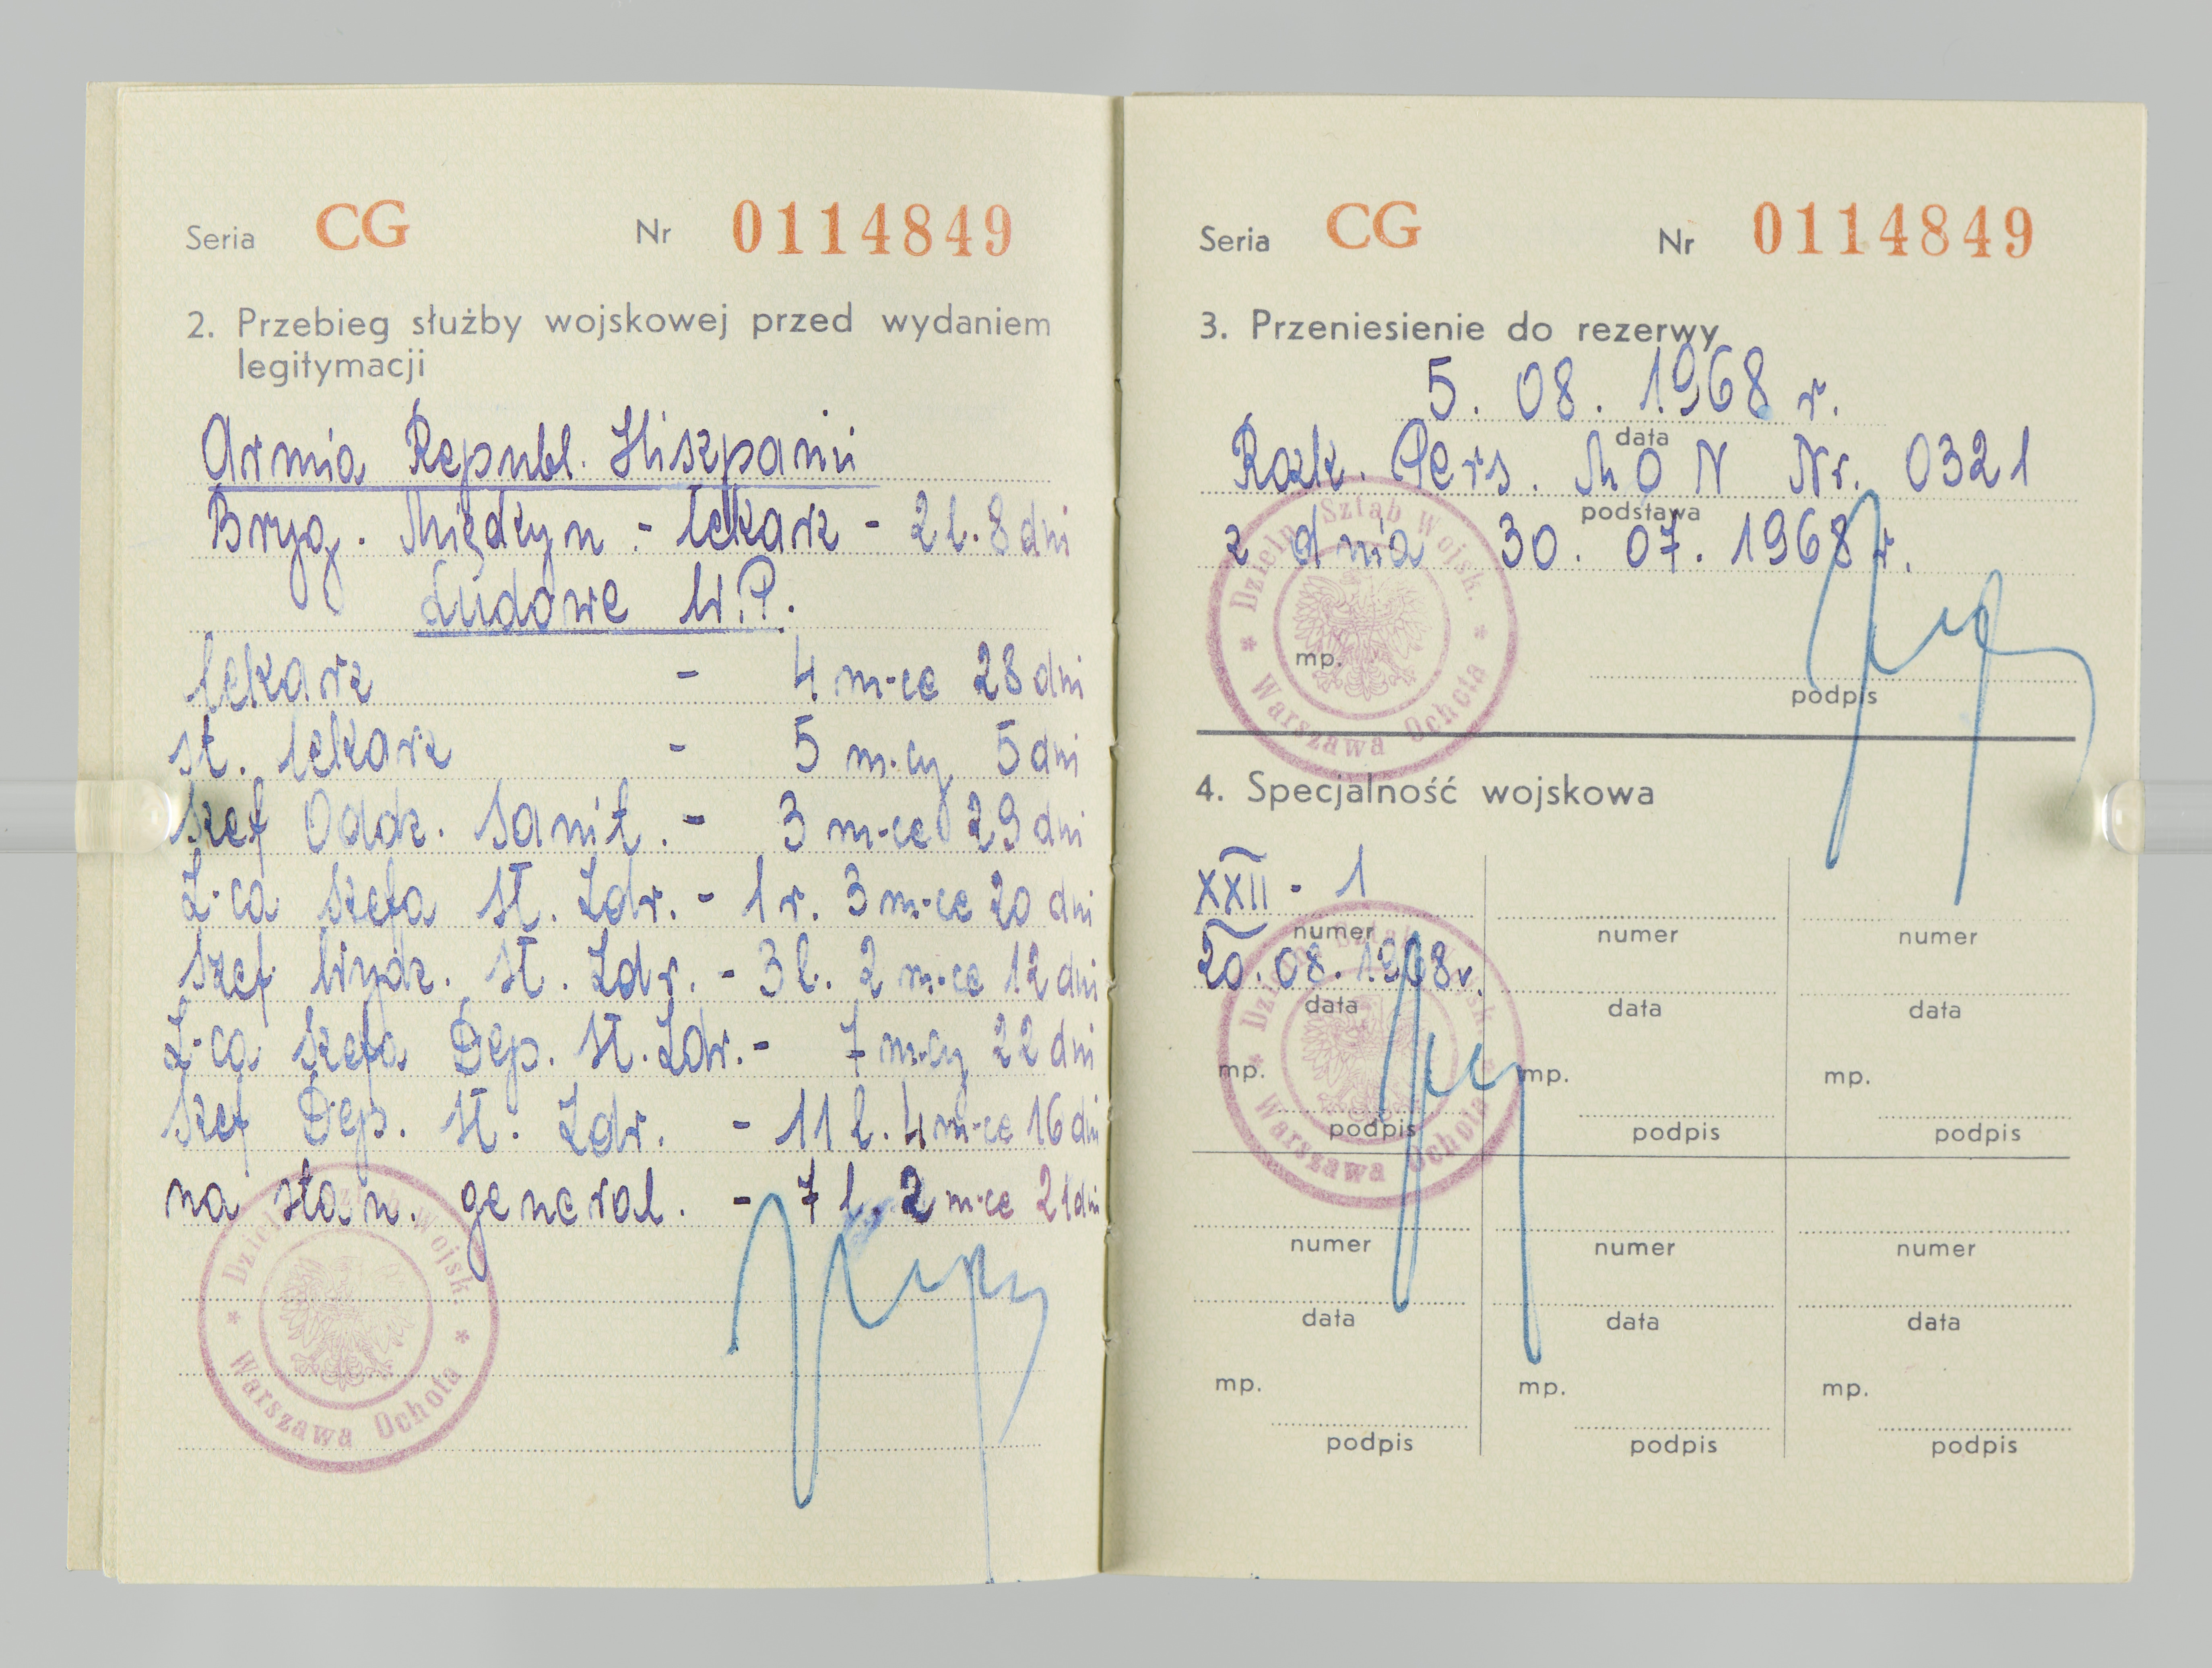 Seria CG Nr 0114849
2. Przebieg służby wojskowej przed wydaniem
legitymacji
Armia Republ. Hiszpanii
Bryg. Międzyn. - lekarz - 2 l. 8 dni
Ludowe W.P.
lekarz - 4 m-ce 28 dni
st. lekarz - 5 m-cy 5 dni
szef Oddz. Sanit. - 3 m-ce 29 dni
Z-ca szefa Sł. Zdr. - 1 r. 3 m-ce 20 dni
Szef Wydz. Sł. Zdr. - 3 l. 2 m-ce 12 dni
Z-ca szefa Dep. Sł. Zdr. - 7 m-cy 22 dni
Szef Dep. Sł. Zdr. - 11 l. 4 m-ce 16 dni
na stan. generał. - 7 l. 2 m-ce 21 dni
Dzieln. Sztab Wojsk.
* Warszawa Ochota *
Seria CG Nr 0114849
3. Przeniesienie do rezerwy
5. 08. 1968 r.
data
Rozk. Pers. MON Nr. 0321
podstawa
z dnia 30. 07. 1968 r.
Dzieln. Sztab Wojsk.
* Warszawa Ochota *
mp.
podpis
4. Specjalność wojskowa
XXII - 1
numer numer numer
20. 08. 1968 r.
data data data
Dzieln. Sztab Wojsk.
* Warszawa Ochota *
mp. mp. mp.
podpis podpis podpis
numer numer numer
data data data
mp. mp. mp.
podpis podpis podpis